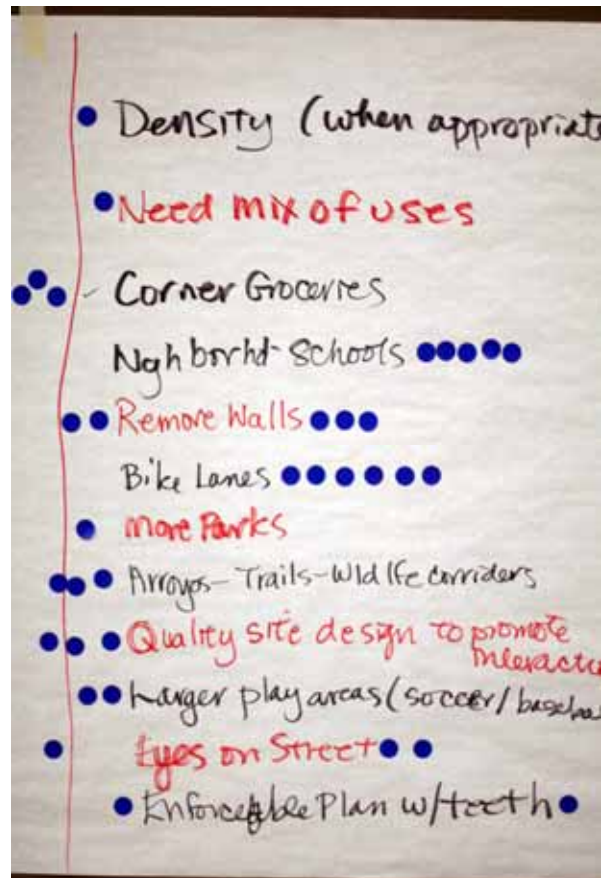 Density (when appropriate
Need mix of uses
Corner Groceries
Nghborhd-Schools
Remove Walls
Bike Lanes
more Parks
Arroyos-Trails-Wldlfe corriders
Quality site design to promote
Interactio
Larger play areas (soccer/baseba
Eyes on Street
Enforceable Plan w/teeth